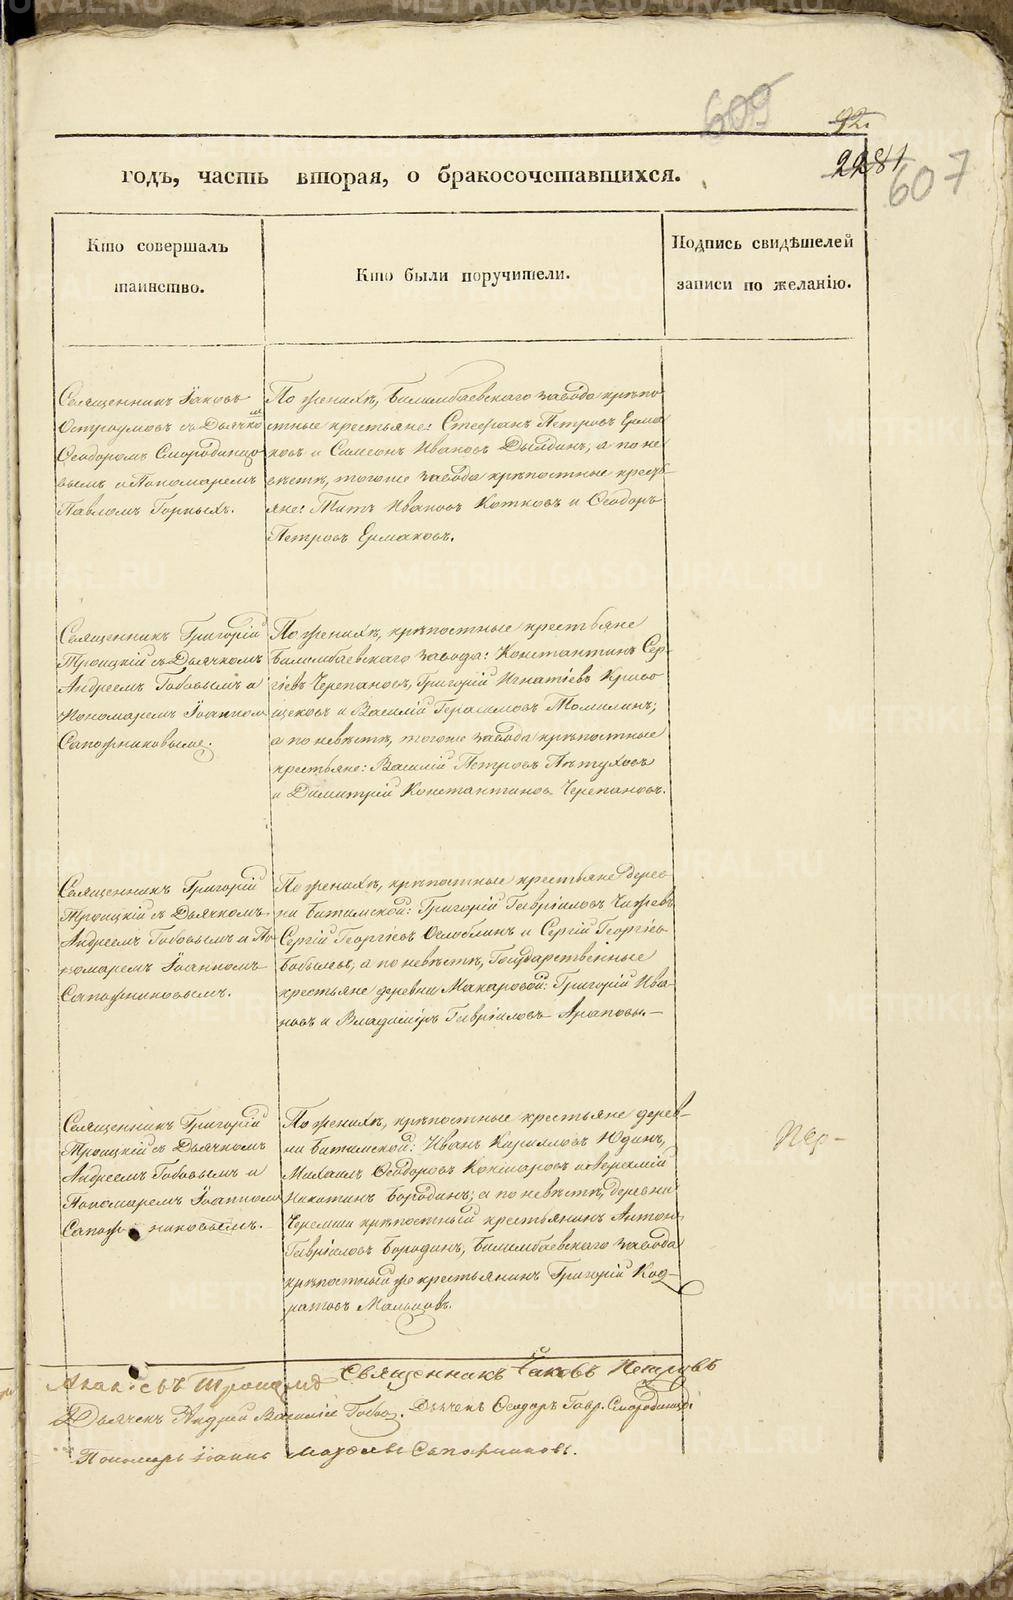 609
92.
2281
607
годъ, часть вторая, о бракосочетавшихся.
Кто совершалъ
таинство.
Кто были поручители.
Подпись свидѣтелей
записи по желанію.
Священникъ Іаковъ
Остроумовъ съ Дьячко
Ѳеодоромъ Смородинцо
вымъ и Пономаремъ
Павломъ Горныхъ.
По женихѣ, Билимбаевскаго завода крѣпо
стные крестьяне: Стефанъ Петровъ Ерма
ковъ и Симеонъ Ивановъ Дылдинъ, а по не
вѣстѣ, тогоже завода крѣпостные кресть-
яне: Титъ Ивановъ Котковъ и Ѳеодоръ
Петровъ Ермаковъ.
Священникъ Григорій
Троицкій съ Дьячкомъ
Андреемъ Бабовымъ и
Пономаремъ Іоанном
Сапожниковымъ.
По женихѣ, крѣпостные крестьяне
Билимбаевскаго завода: Константинъ Сер-
гіевъ Черепановъ, Григорій Игнатіевъ Криво
щековъ и Василій Герасимовъ Томилинъ;
а по невѣстѣ, тогоже завода крѣпостные
крестьяне: Василій Петровъ Пѣтуховъ
и Димитрій Константиновъ Черепановъ.
Священникъ Григорій
Троицкій съ Дьячкомъ
Андреемъ Бабовымъ и По
номаремъ Іоанномъ
Сапожниковымъ.
По женихѣ, крѣпостные крестьяне дерев
ни Битимской: Григорій Гавріиловъ Чижевъ
Сергій Георгіевъ Оглоблинъ и Сергій Георгіевъ
Бобылевъ, а по невѣстѣ, Государственные
крестьяне деревни Макаровой: Григорій Ива-
новъ и Владиміръ Гавріиловъ Араповы.
Священникъ Григорій
Троицкій съ Дьячкомъ
Андреемъ Бабовымъ и
Пономаремъ Іоанном
Сапожниковымъ.
По женихѣ, крѣпостные крестьяне дерев-
ни Битимской: Иванъ Кириловъ Юдинъ,
Михаилъ Ѳеодоровъ Кокшаровъ и Іеремій
Никитинъ Бородинъ; а по невѣстѣ, деревни
Черемши крѣпостный крестьянинъ Антонъ
Гавріиловъ Бородинъ, Билимбаевскаго завода
крѣпостный же крестьянинъ Григорій Код-
ратовъ Мальцовъ.
Пер-
Священникъ Іаковъ
Дьячекъ Андрей Василіев Дьячекъ Ѳеодоръ Гавр. Смородинцо
Пономарь Іоаннъ Сапожниковъ.
METRIKI.GASO-URAL.RU